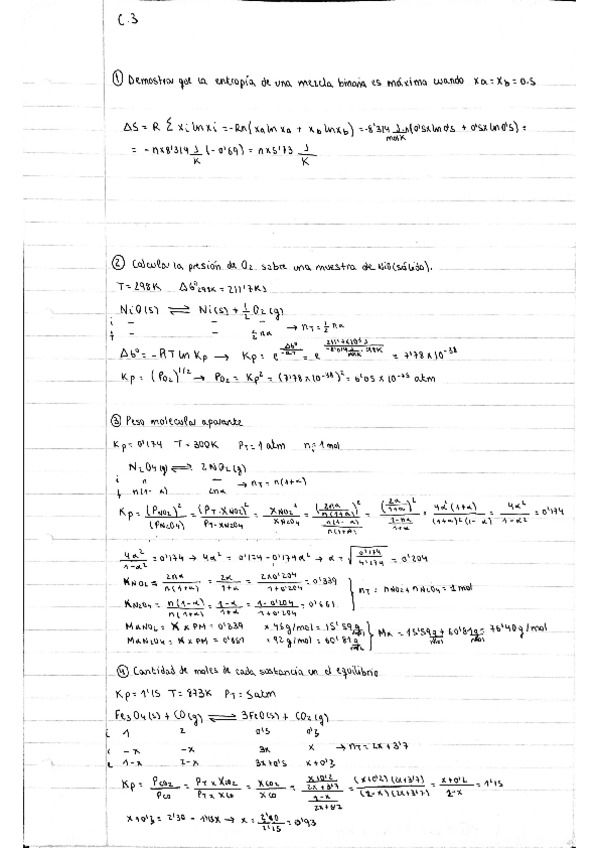 C.3
① Demostrar que la entropía de una mezcla binaria es máxima cuando xa = xb = 0.5
ΔS = R Σ xi ln xi = -Rn(xa ln xa + xb ln xb) = -8'314 J/mol K · n(0'5 x ln 0'5 + 0'5 x ln 0'5) =
= -n x 8'314 J/K (-0'69) = n x 5'73 J/K
② Calcular la presión de O2 sobre una muestra de NiO (sólido).
T = 298K ΔG°298K = 211'7 KJ
NiO(s) ⇌ Ni(s) + 1/2 O2(g)
i - - -
f - - 1/2 nα → nT = 1/2 nα
ΔG° = -RT ln Kp → Kp = e^(ΔG°/-RT) = = 7'78 x 10^-38
Kp = (PO2)^1/2 → PO2 = Kp² = (7'78 x 10^-38)² = 6'05 x 10^-75 atm
③ Peso molecular aparente
Kp = 0'174 T = 300K PT = 1 atm ni = 1 mol
N2O4(g) ⇌ 2NO2(g)
i n -
f n(1-α) 2nα → nT = n(1+α)
Kp = (PNO2)²/(PN2O4) = (PT·XNO2)²/PT·XN2O4 = XNO2²/XN2O4 = (2nα/n(1+α))²/(n(1-α)/n(1+α)) = = 4α²(1+α)/(1+α)²(1-α) = 4α²/1-α² = 0'174
4α²/1-α² = 0'174 → 4α² = 0'174 - 0'174α² → α = √(0'174/4'174) = 0'204
XNO2 = 2nα/n(1+α) = 2α/1+α = 2x0'204/1+0'204 = 0'339
XN2O4 = n(1-α)/n(1+α) = 1-α/1+α = 1-0'204/1+0'204 = 0'661 } nT = nNO2 + nN2O4 = 1 mol
MaNO2 = X x PM = 0'339 x 46 g/mol = 15'59 g/mol
MaN2O4 = X x PM = 0'661 x 92 g/mol = 60'81 g/mol } Ma = 15'59 g/mol + 60'81 g/mol = 76'40 g/mol
④ Cantidad de moles de cada sustancia en el equilibrio
Kp = 1'15 T = 873K PT = 5 atm
Fe3O4(s) + CO(g) ⇌ 3FeO(s) + CO2(g)
i 1 2 0'5 0'3
-x -x 3x x → nT = 2x + 3'7
e 1-x 2-x 3x+0'5 x+0'3
Kp = PCO2/PCO = PT x XCO2/PT x XCO = XCO2/XCO = = = = 1'15
x + 0'3 = 2'30 - 1'15x → x = = 0'93